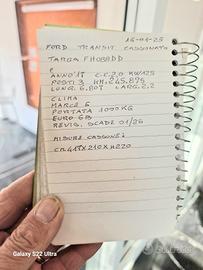 16-04-25
FORD TRANSIT CASSONATO
TARGA. FH088DD
ANNO 18 C.C. 2.0 KW 125
POSTI 3 KM. 245.895
LUNG. 6.807 LARG. 2.2
CLIMA
MARCE 6
PORTATA 1090 KG
EURO 6B
REVIS. SCADE 01/26
MISURE CASSONE:
CM. 418X210XH220
Galaxy S22 Ultra
Subito